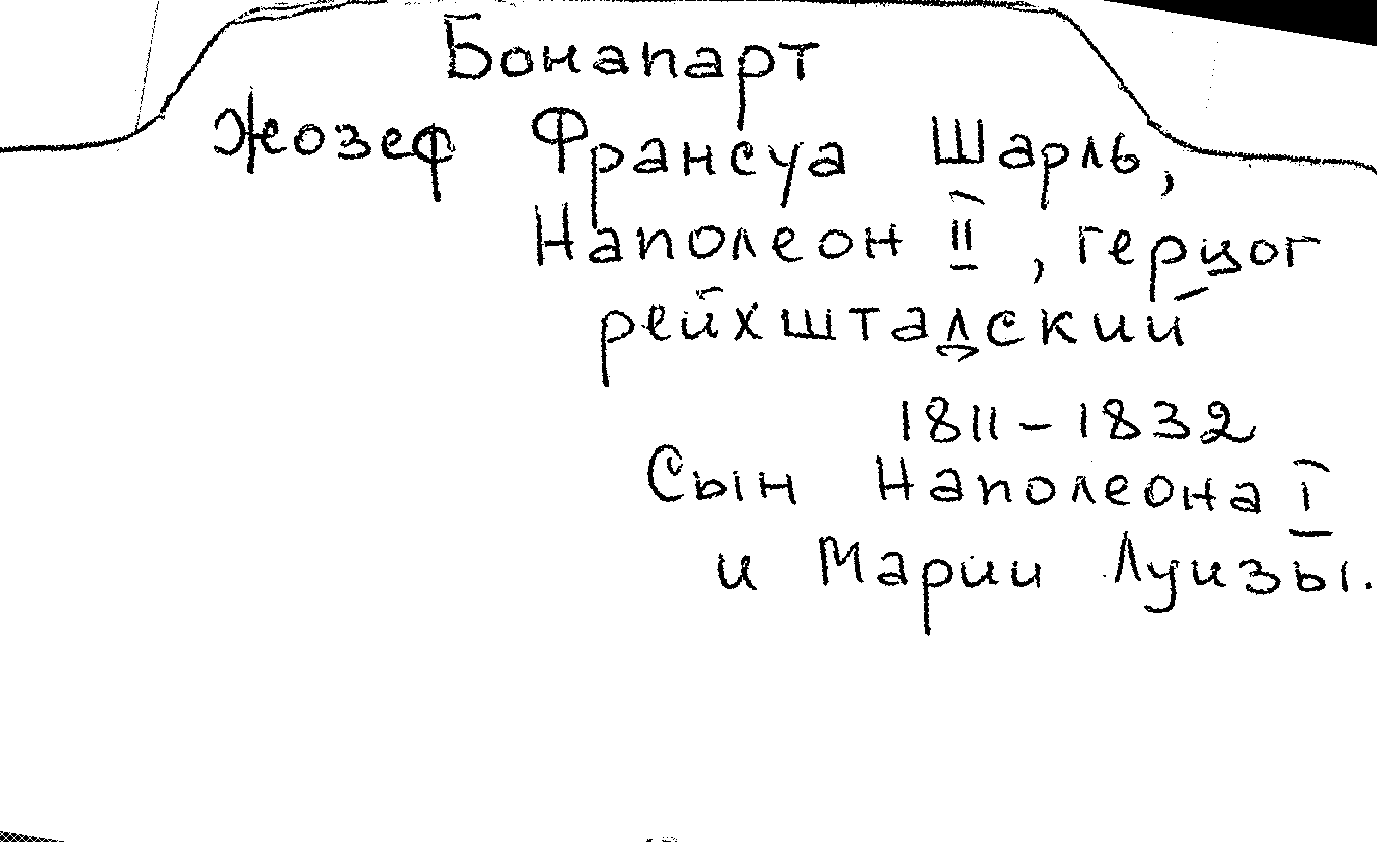 Бонапарт
Жозеф Франсуа Шарль,
Наполеон II, герцог
рейхштадский
1811-1832
Сын Наполеона I
и Марии Луизы.